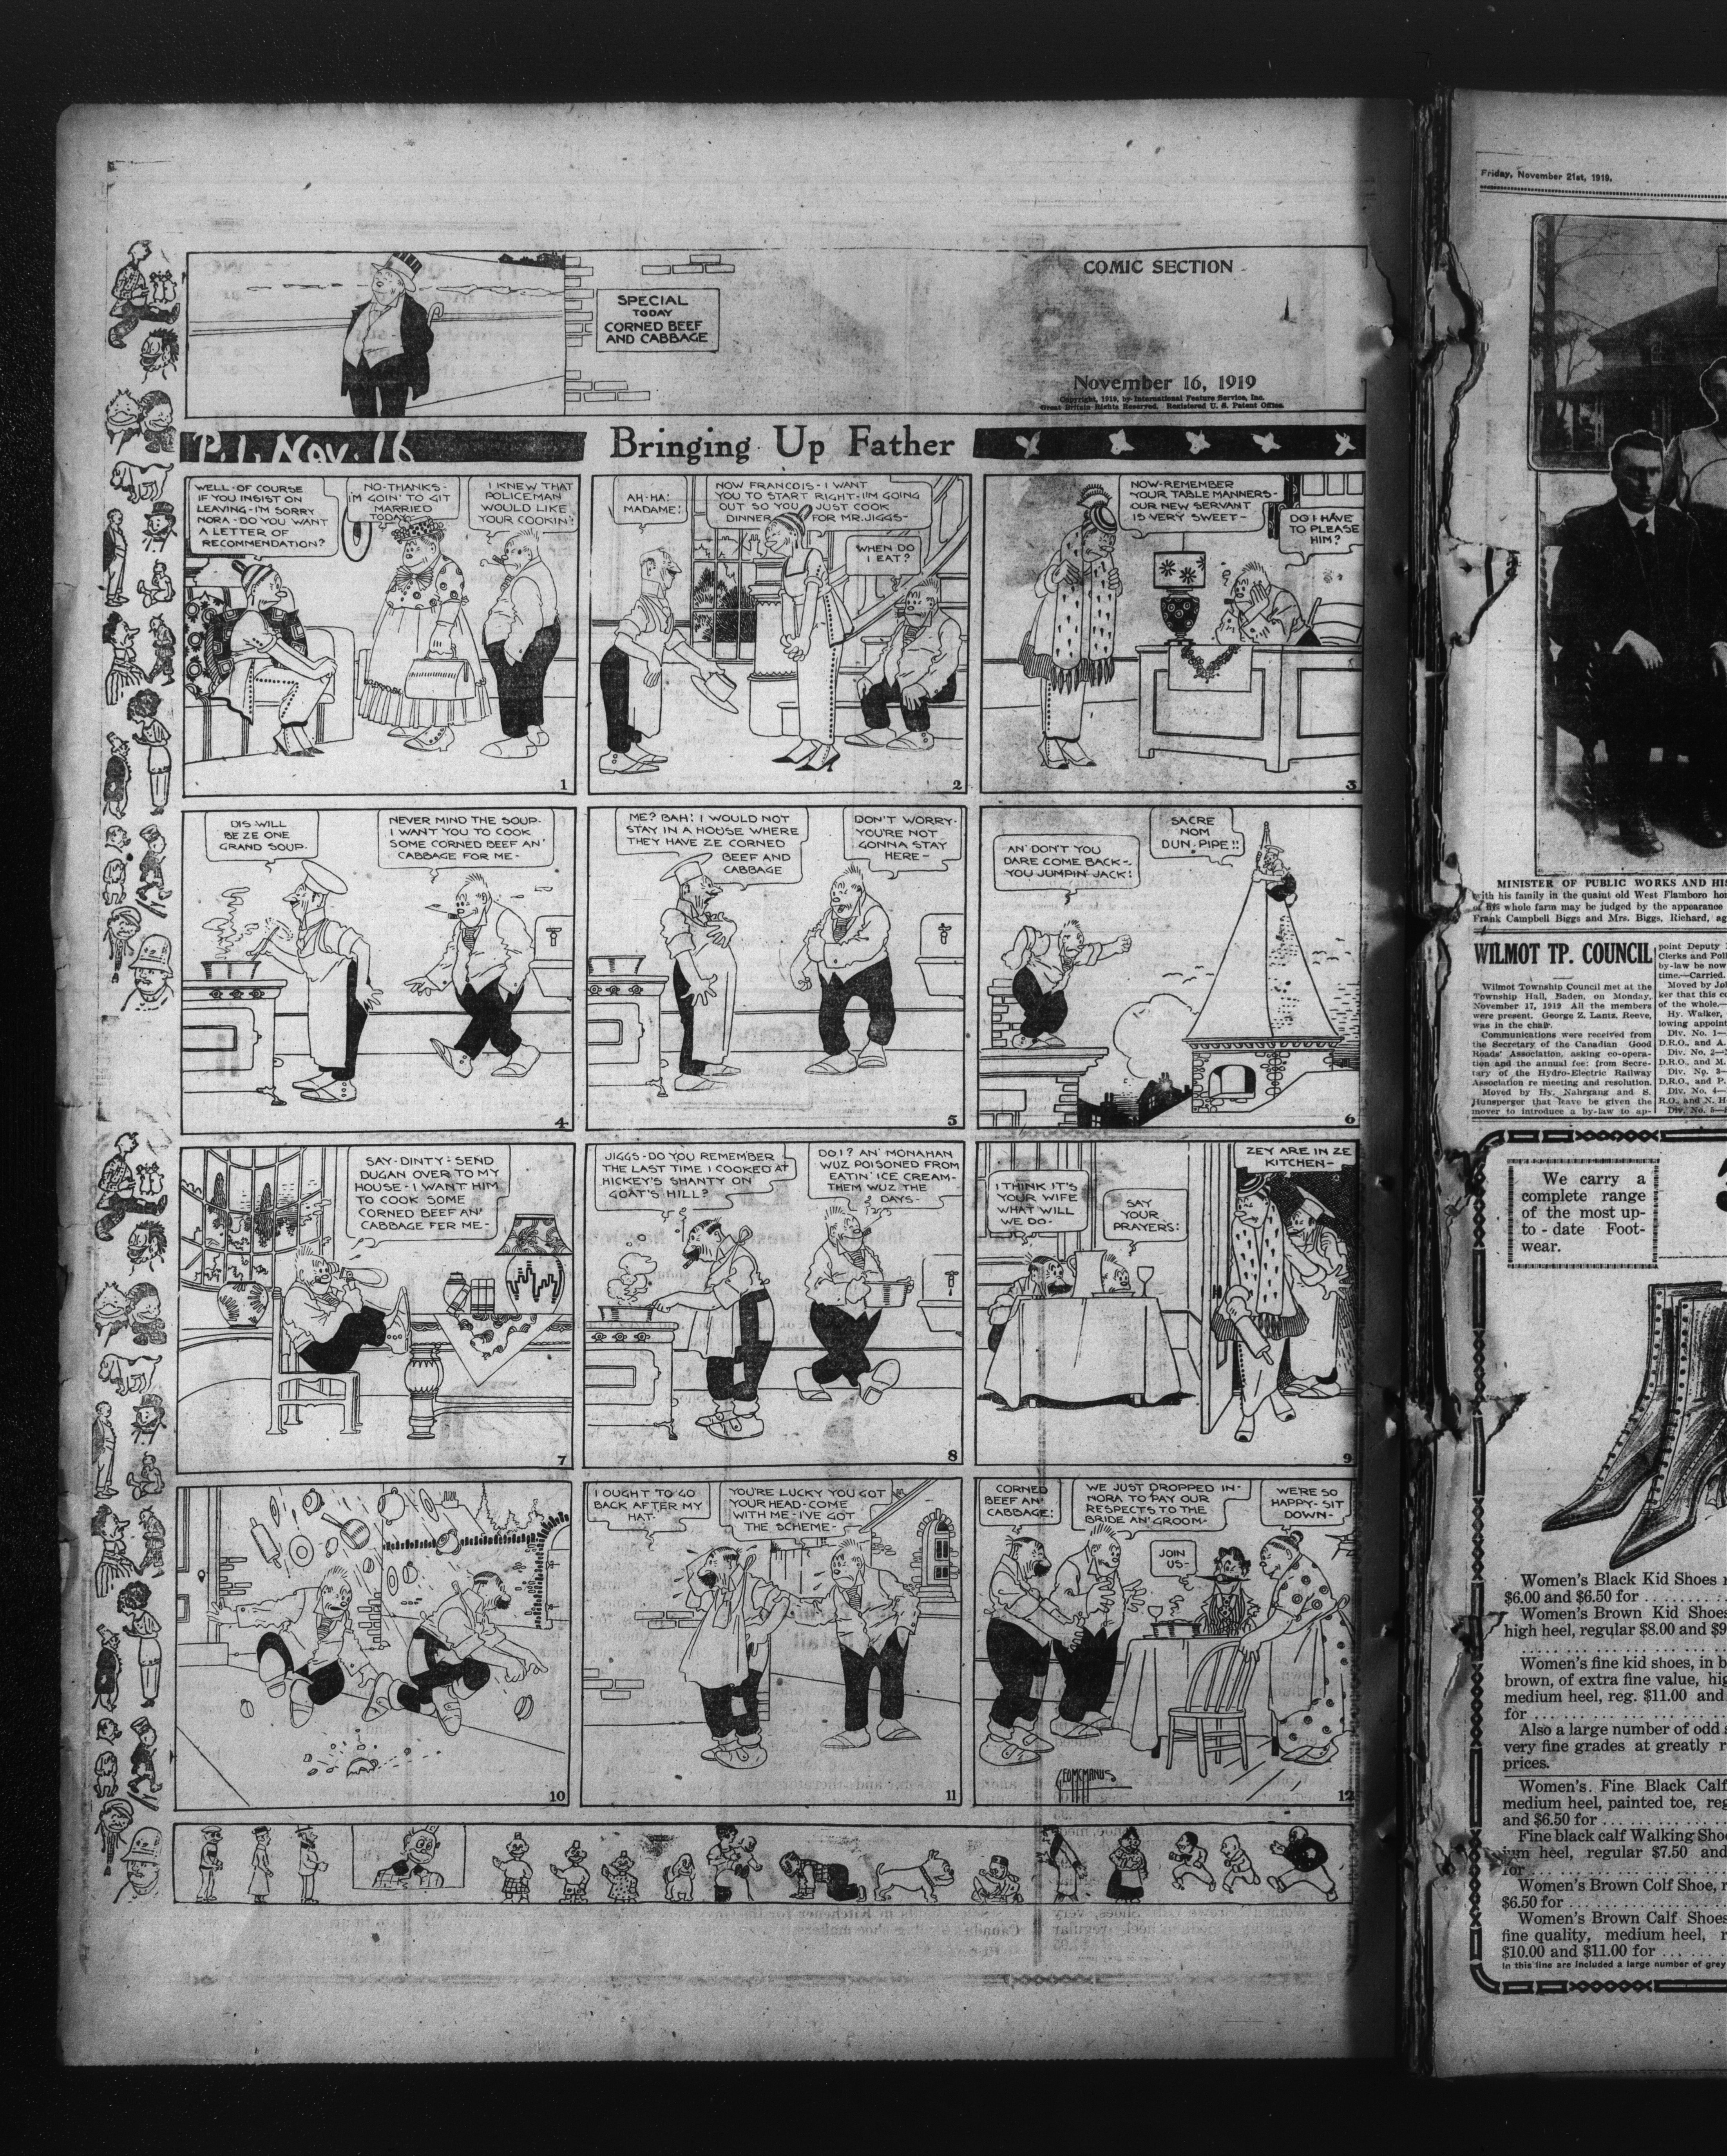 SPECIAL
TODAY
CORNED BEEF
AND CABBAGE
COMIC SECTION
November 16, 1919
Copyright, 1919, by International Feature Service, Inc.
Great Britain Rights Reserved. Registered U. S. Patent Office.
P.1. NOV. 16
Bringing Up Father
WELL-OF COURSE
IF YOU INSIST ON
LEAVING-I'M SORRY
NORA-DO YOU WANT
A LETTER OF
RECOMMENDATION?
NO-THANKS-
I'M GOIN' TO GIT
MARRIED
TODAY-
I KNEW THAT
POLICEMAN
WOULD LIKE
YOUR COOKIN'!
1
AH-HA!
MADAME!
NOW FRANCOIS-I WANT
YOU TO START RIGHT-I'M GOING
OUT SO YOU JUST COOK
DINNER FOR MR. JIGGS-
WHEN DO
I EAT?
2
NOW-REMEMBER
YOUR TABLE MANNERS-
OUR NEW SERVANT
IS VERY SWEET-
DO I HAVE
TO PLEASE
HIM?
3
DIS WILL
BE ZE ONE
GRAND SOUP-
NEVER MIND THE SOUP-
I WANT YOU TO COOK
SOME CORNED BEEF AN'
CABBAGE FOR ME-
4
ME? BAH! I WOULD NOT
STAY IN A HOUSE WHERE
THEY HAVE ZE CORNED
BEEF AND
CABBAGE
DON'T WORRY-
YOU'RE NOT
GONNA STAY
HERE-
5
AN' DON'T YOU
DARE COME BACK-
YOU JUMPIN' JACK!
SACRE
NOM
DUN PIPE!!
6
SAY-DINTY-SEND
DUGAN OVER TO MY
HOUSE-I WANT HIM
TO COOK SOME
CORNED BEEF AN'
CABBAGE FER ME-
7
JIGGS-DO YOU REMEMBER
THE LAST TIME I COOKED AT
HICKEY'S SHANTY ON
GOAT'S HILL?
DO I? AN' MONAHAN
WUZ POISONED FROM
EATIN' ICE CREAM-
THEM WUZ THE
DAYS-
8
I THINK IT'S
YOUR WIFE
WHAT WILL
WE DO-
SAY
YOUR
PRAYERS!
ZEY ARE IN ZE
KITCHEN-
9
10
I OUGHT TO GO
BACK AFTER MY
HAT-
YOU'RE LUCKY YOU GOT
YOUR HEAD-COME
WITH ME-I'VE GOT
THE SCHEME-
11
CORNED
BEEF AN'
CABBAGE!
WE JUST DROPPED IN-
NORA TO PAY OUR
RESPECTS TO THE
BRIDE AN' GROOM-
JOIN
US-
WE'RE SO
HAPPY-SIT
DOWN-
GEO MCMANUS
12
Friday, November 21st, 1919.
MINISTER OF PUBLIC WORKS AND HI
with his family in the quaint old West Flamboro ho
of his whole farm may be judged by the appearance
Frank Campbell Biggs and Mrs. Biggs, Richard, ag
WILMOT TP. COUNCIL
Wilmot Township Council met at the
Township Hall, Baden, on Monday,
November 17, 1919 All the members
were present. George Z. Lantz, Reeve,
was in the chair.
Communications were received from
the Secretary of the Canadian Good
Roads' Association, asking co-opera-
tion and the annual fee; from Secre-
tary of the Hydro-Electric Railway
Association re meeting and resolution.
Moved by Hy. Nahrgang and S.
Hunsperger that leave be given the
mover to introduce a by-law to ap-
point Deputy
Clerks and Poll
by-law be now
time.—Carried.
Moved by Jo
ker that this co
of the whole.—
Hy. Walker,
lowing appoint
Div. No. 1—
D.R.O., and A.
Div. No. 2—
D.R.O., and M.
Div. No. 3—
D.R.O., and P.
Div. No. 4—
R.O., and N. H
Div. No. 5—
We carry a
complete range
of the most up-
to - date Foot-
wear.
Women's Black Kid Shoes
$6.00 and $6.50 for
Women's Brown Kid Shoes
high heel, regular $8.00 and $9
Women's fine kid shoes, in b
brown, of extra fine value, hig
medium heel, reg. $11.00 and
for
Also a large number of odd
very fine grades at greatly r
prices.
Women's. Fine Black Calf
medium heel, painted toe, reg
and $6.50 for
Fine black calf Walking Sho
ium heel, regular $7.50 and
for
Women's Brown Colf Shoe, r
$6.50 for
Women's Brown Calf Shoes
fine quality, medium heel, r
$10.00 and $11.00 for
In this fine are included a large number of grey